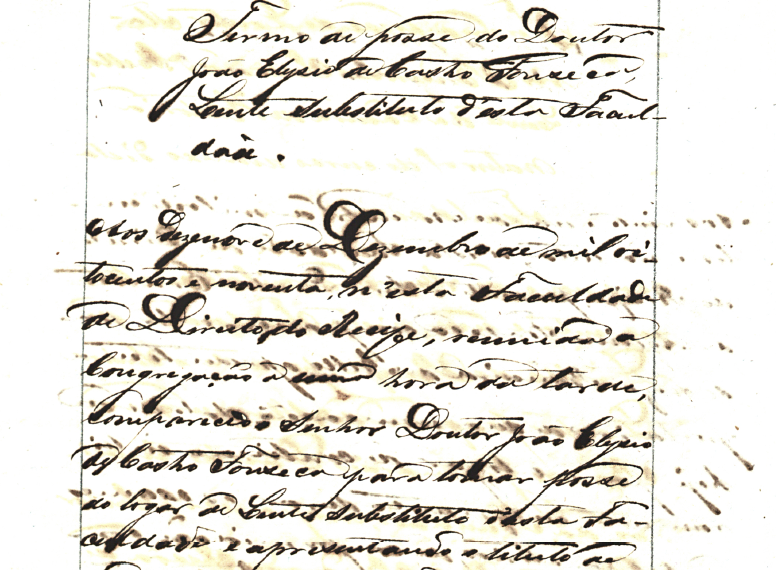 Termo de posse do Doutor
João Elysio de Castro Fonseca,
Lente Substituto d'esta Facul-
dade.
Aos dezenove de Dezembro de mil oi-
tocentos e noventa, n'esta Faculdade
de Direito do Recife, reunida a
Congregação a uma hora da tarde,
compareceo o Senhor Doutor João Elysio
de Castro Fonseca para tomar posse
do logar de Lente Substituto d'esta Fa-
culdade e apresentando o titulo de